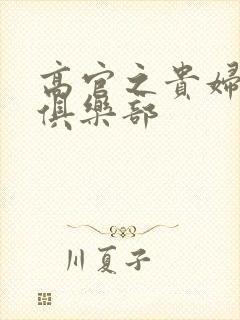 高官之貴婦
俱樂部
川夏子